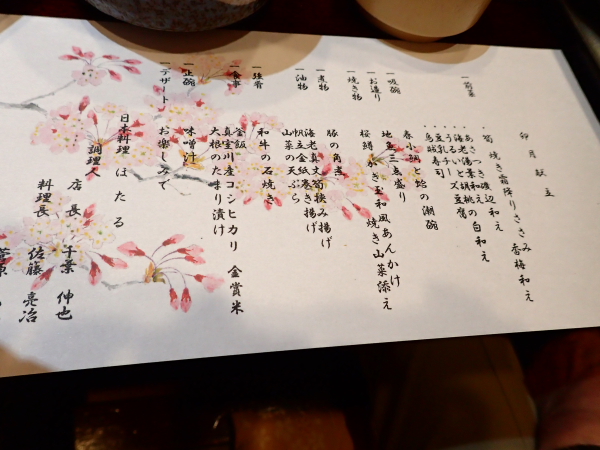 卯月献立
一前菜
筍 焼き霜降りささみ 香梅和え
あさつき磯辺和え
あさ湯葉胡桃の白和え
うるいとズ豆腐
豆乳チーズ
鳥賊寿司
一吸碗
春小鯛と蛤の潮碗
一お造り
地魚三点盛り
一焼き物
桜鱒 水き玉和風あんかけ
焼き山菜添え
一煮物
豚の角煮
一油物
海老真丈筍挟み揚げ
帆立金紙巻き揚げ
山菜の天ぷら
一強肴
和牛の石焼き
一食事
釜飯
真室川産コシヒカリ 金賞米
大根のたまり漬け
一止碗
味噌汁
一デザート
お楽しみで
日本料理 ほたる
調理人
店長 千葉 伸也
料理長 佐藤 亮治
菅原